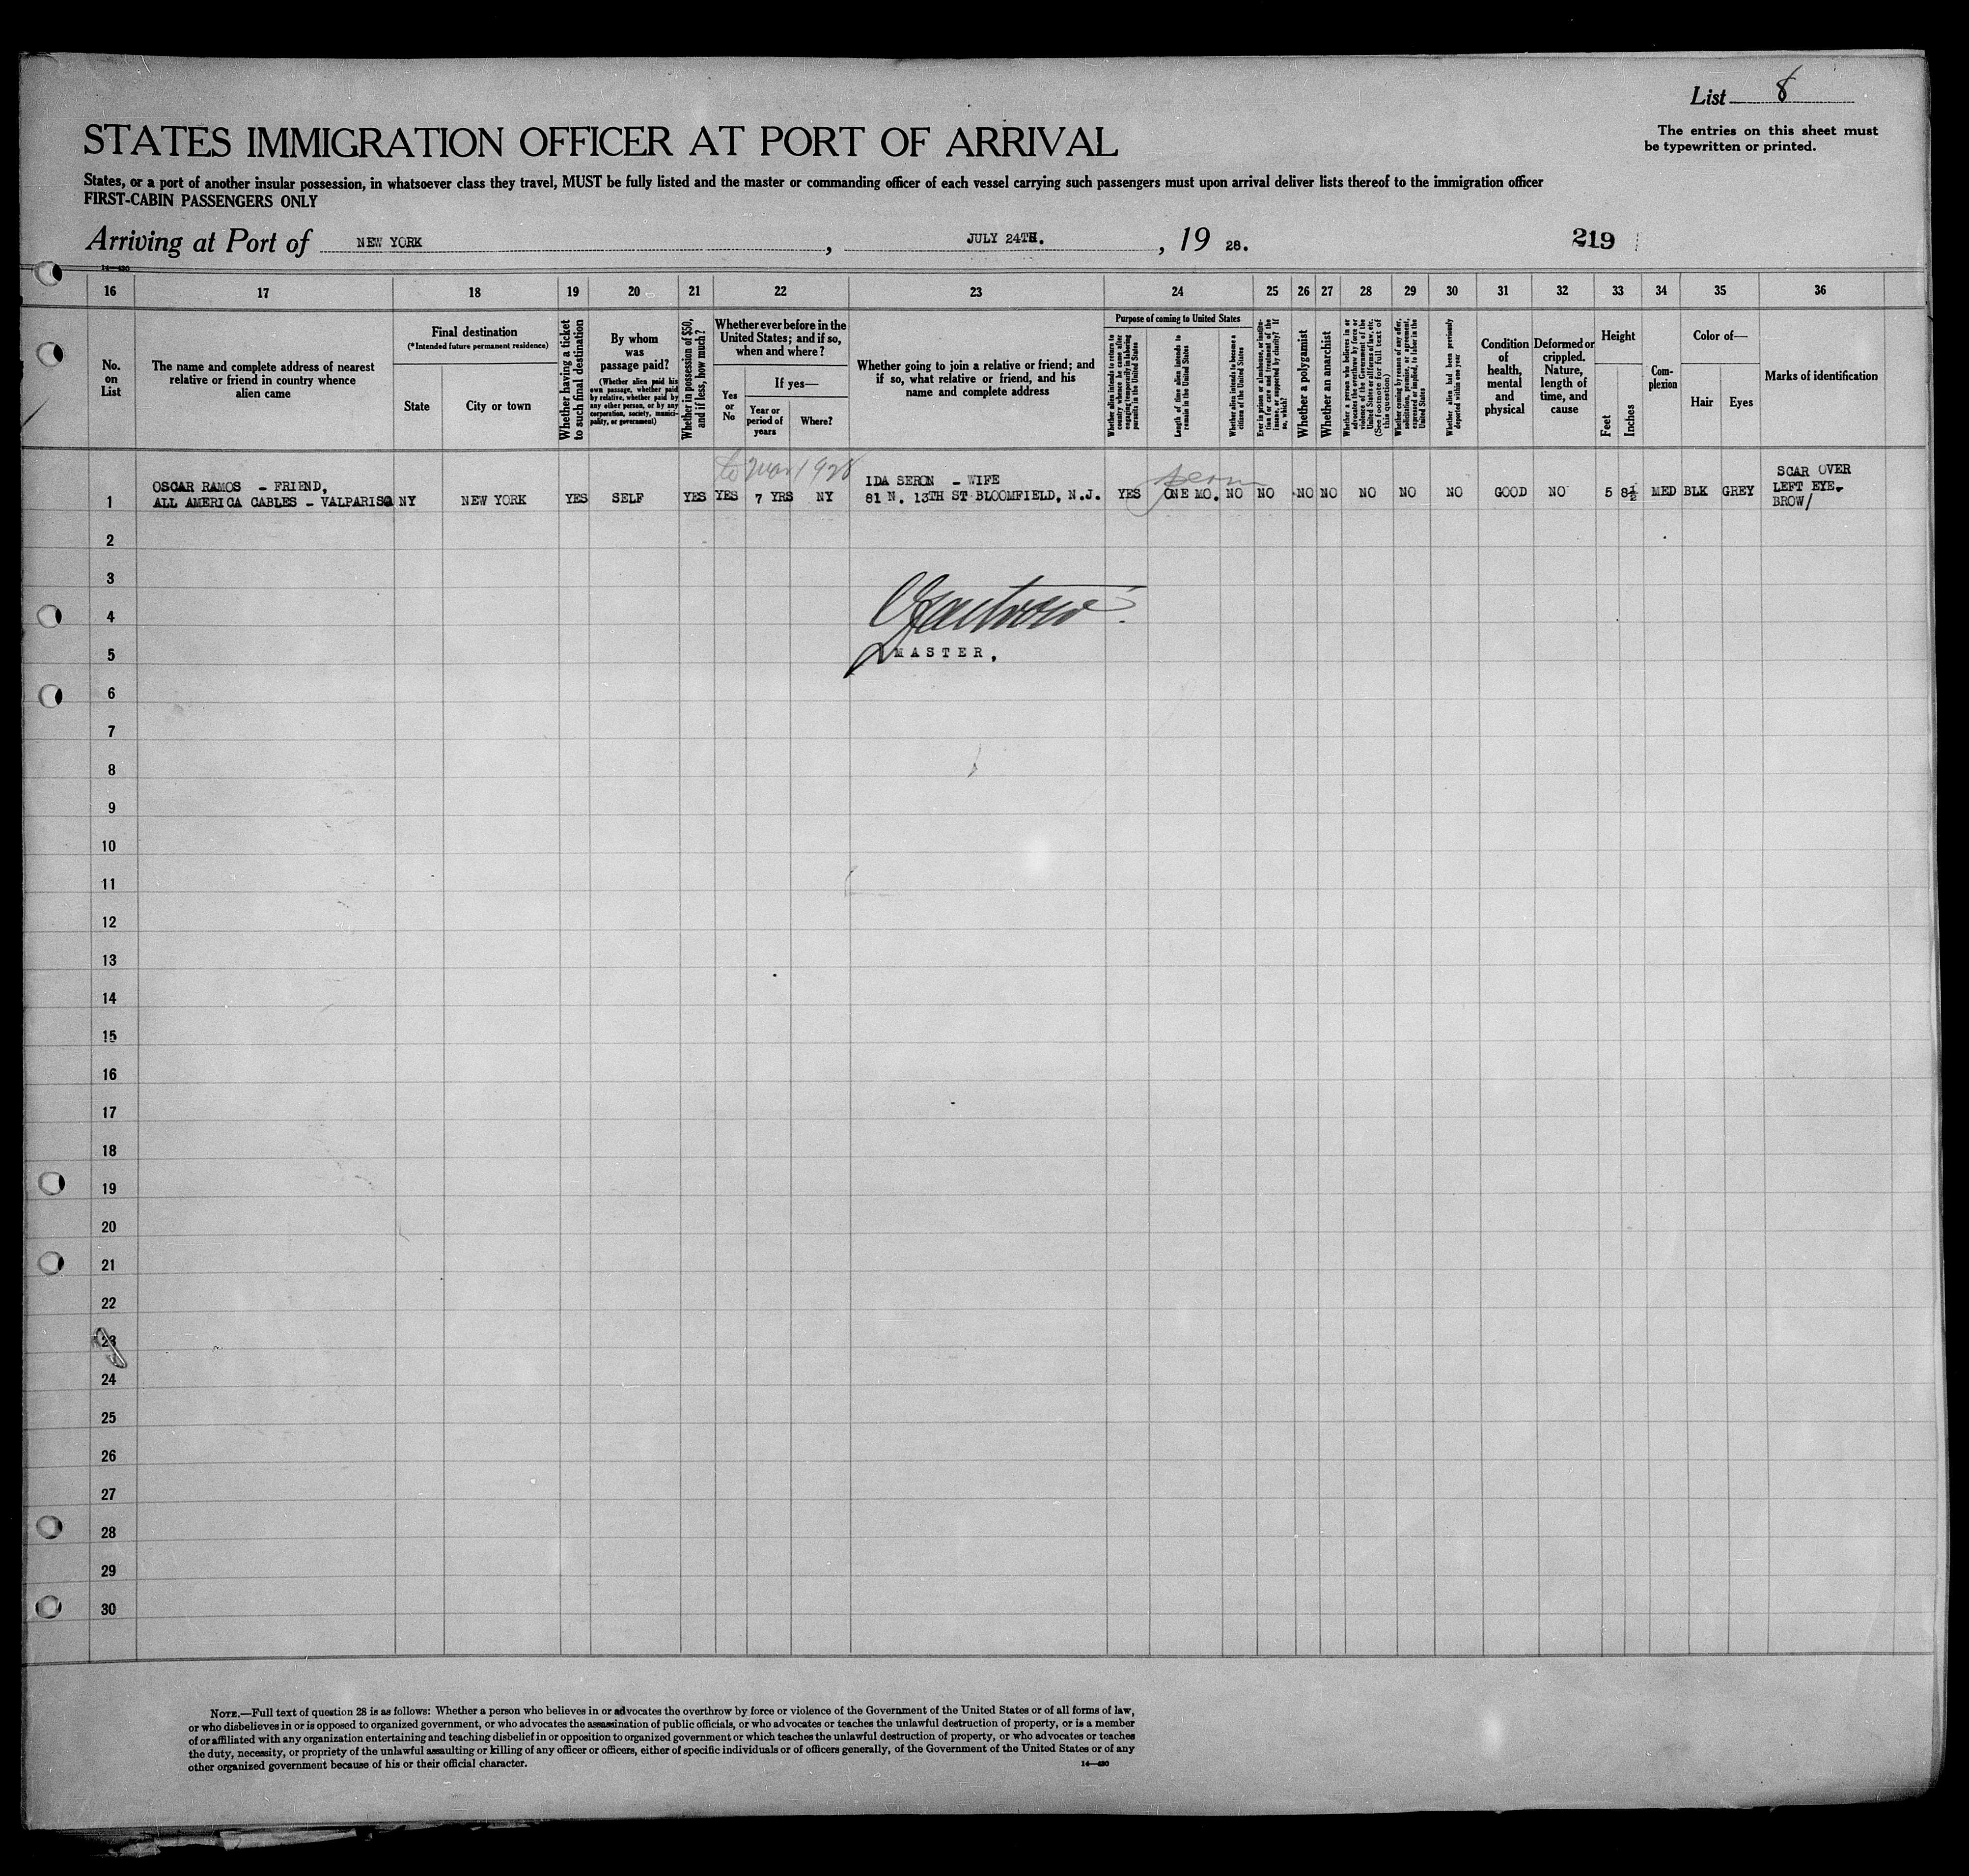 List 8
The entries on this sheet must
be typewritten or printed.
STATES IMMIGRATION OFFICER AT PORT OF ARRIVAL
States, or a port of another insular possession, in whatsoever class they travel, MUST be fully listed and the master or commanding officer of each vessel carrying such passengers must upon arrival deliver lists thereof to the immigration officer
FIRST-CABIN PASSENGERS ONLY
Arriving at Port of NEW YORK, JULY 24TH., 19 28.
219
14—430
16 17 18 19 20 21 22 23 24 25 26 27 28 29 30 31 32 33 34 35 36
No.
on
List
The name and complete address of nearest
relative or friend in country whence
alien came
Final destination
(*Intended future permanent residence)
State
City or town
Whether having a ticket
to such final destination
By whom
was
passage paid?
(Whether alien paid his
own passage, whether paid
by relative, whether paid by
any other person, or by any
corporation, society, munici-
pality, or government)
Whether in possession of $50,
and if less, how much?
Whether ever before in the
United States; and if so,
when and where?
Yes
or
No
If yes—
Year or
period of
years
Where?
Whether going to join a relative or friend; and
if so, what relative or friend, and his
name and complete address
Purpose of coming to United States
Whether alien intends to return to
country whence he came after
engaging temporarily in laboring
pursuits in the United States
Length of time alien intends to
remain in the United States
Whether alien intends to become a
citizen of the United States
Ever in prison or almshouse, or institu-
tion for care and treatment of the
insane, or supported by charity? If
so, which?
Whether a polygamist
Whether an anarchist
Whether a person who believes in or
advocates the overthrow by force or
violence of the Government of the
United States or all forms of law, etc.
(See footnote for full text of
this question)
Whether coming by reason of any offer,
solicitation, promise, or agreement,
expressed or implied, to labor in the
United States
Whether alien had been previously
deported within one year
Condition
of
health,
mental
and
physical
Deformed or
crippled.
Nature,
length of
time, and
cause
Height
Feet
Inches
Com-
plexion
Color of—
Hair
Eyes
Marks of identification
to Mar 1928
perm
1 OSCAR RAMOS - FRIEND,
ALL AMERICA CABLES - VALPARISO NY NEW YORK YES SELF YES YES 7 YRS NY
IDA SERON - WIFE
81 N. 13TH ST BLOOMFIELD, N.J. YES ONE MO. NO NO NO NO NO NO NO GOOD NO 5 8½ MED BLK GREY
SCAR OVER
LEFT EYE-
BROW/
2
3
4
MASTER.
5
6
7
8
9
10
11
12
13
14
15
16
17
18
19
20
21
22
23
24
25
26
27
28
29
30
NOTE.—Full text of question 28 is as follows: Whether a person who believes in or advocates the overthrow by force or violence of the Government of the United States or of all forms of law,
or who disbelieves in or is opposed to organized government, or who advocates the assassination of public officials, or who advocates or teaches the unlawful destruction of property, or is a member
of or affiliated with any organization entertaining and teaching disbelief in or opposition to organized government or which teaches the unlawful destruction of property, or who advocates or teaches
the duty, necessity, or propriety of the unlawful assaulting or killing of any officer or officers, either of specific individuals or of officers generally, of the Government of the United States or of any
other organized government because of his or their official character.
14—430